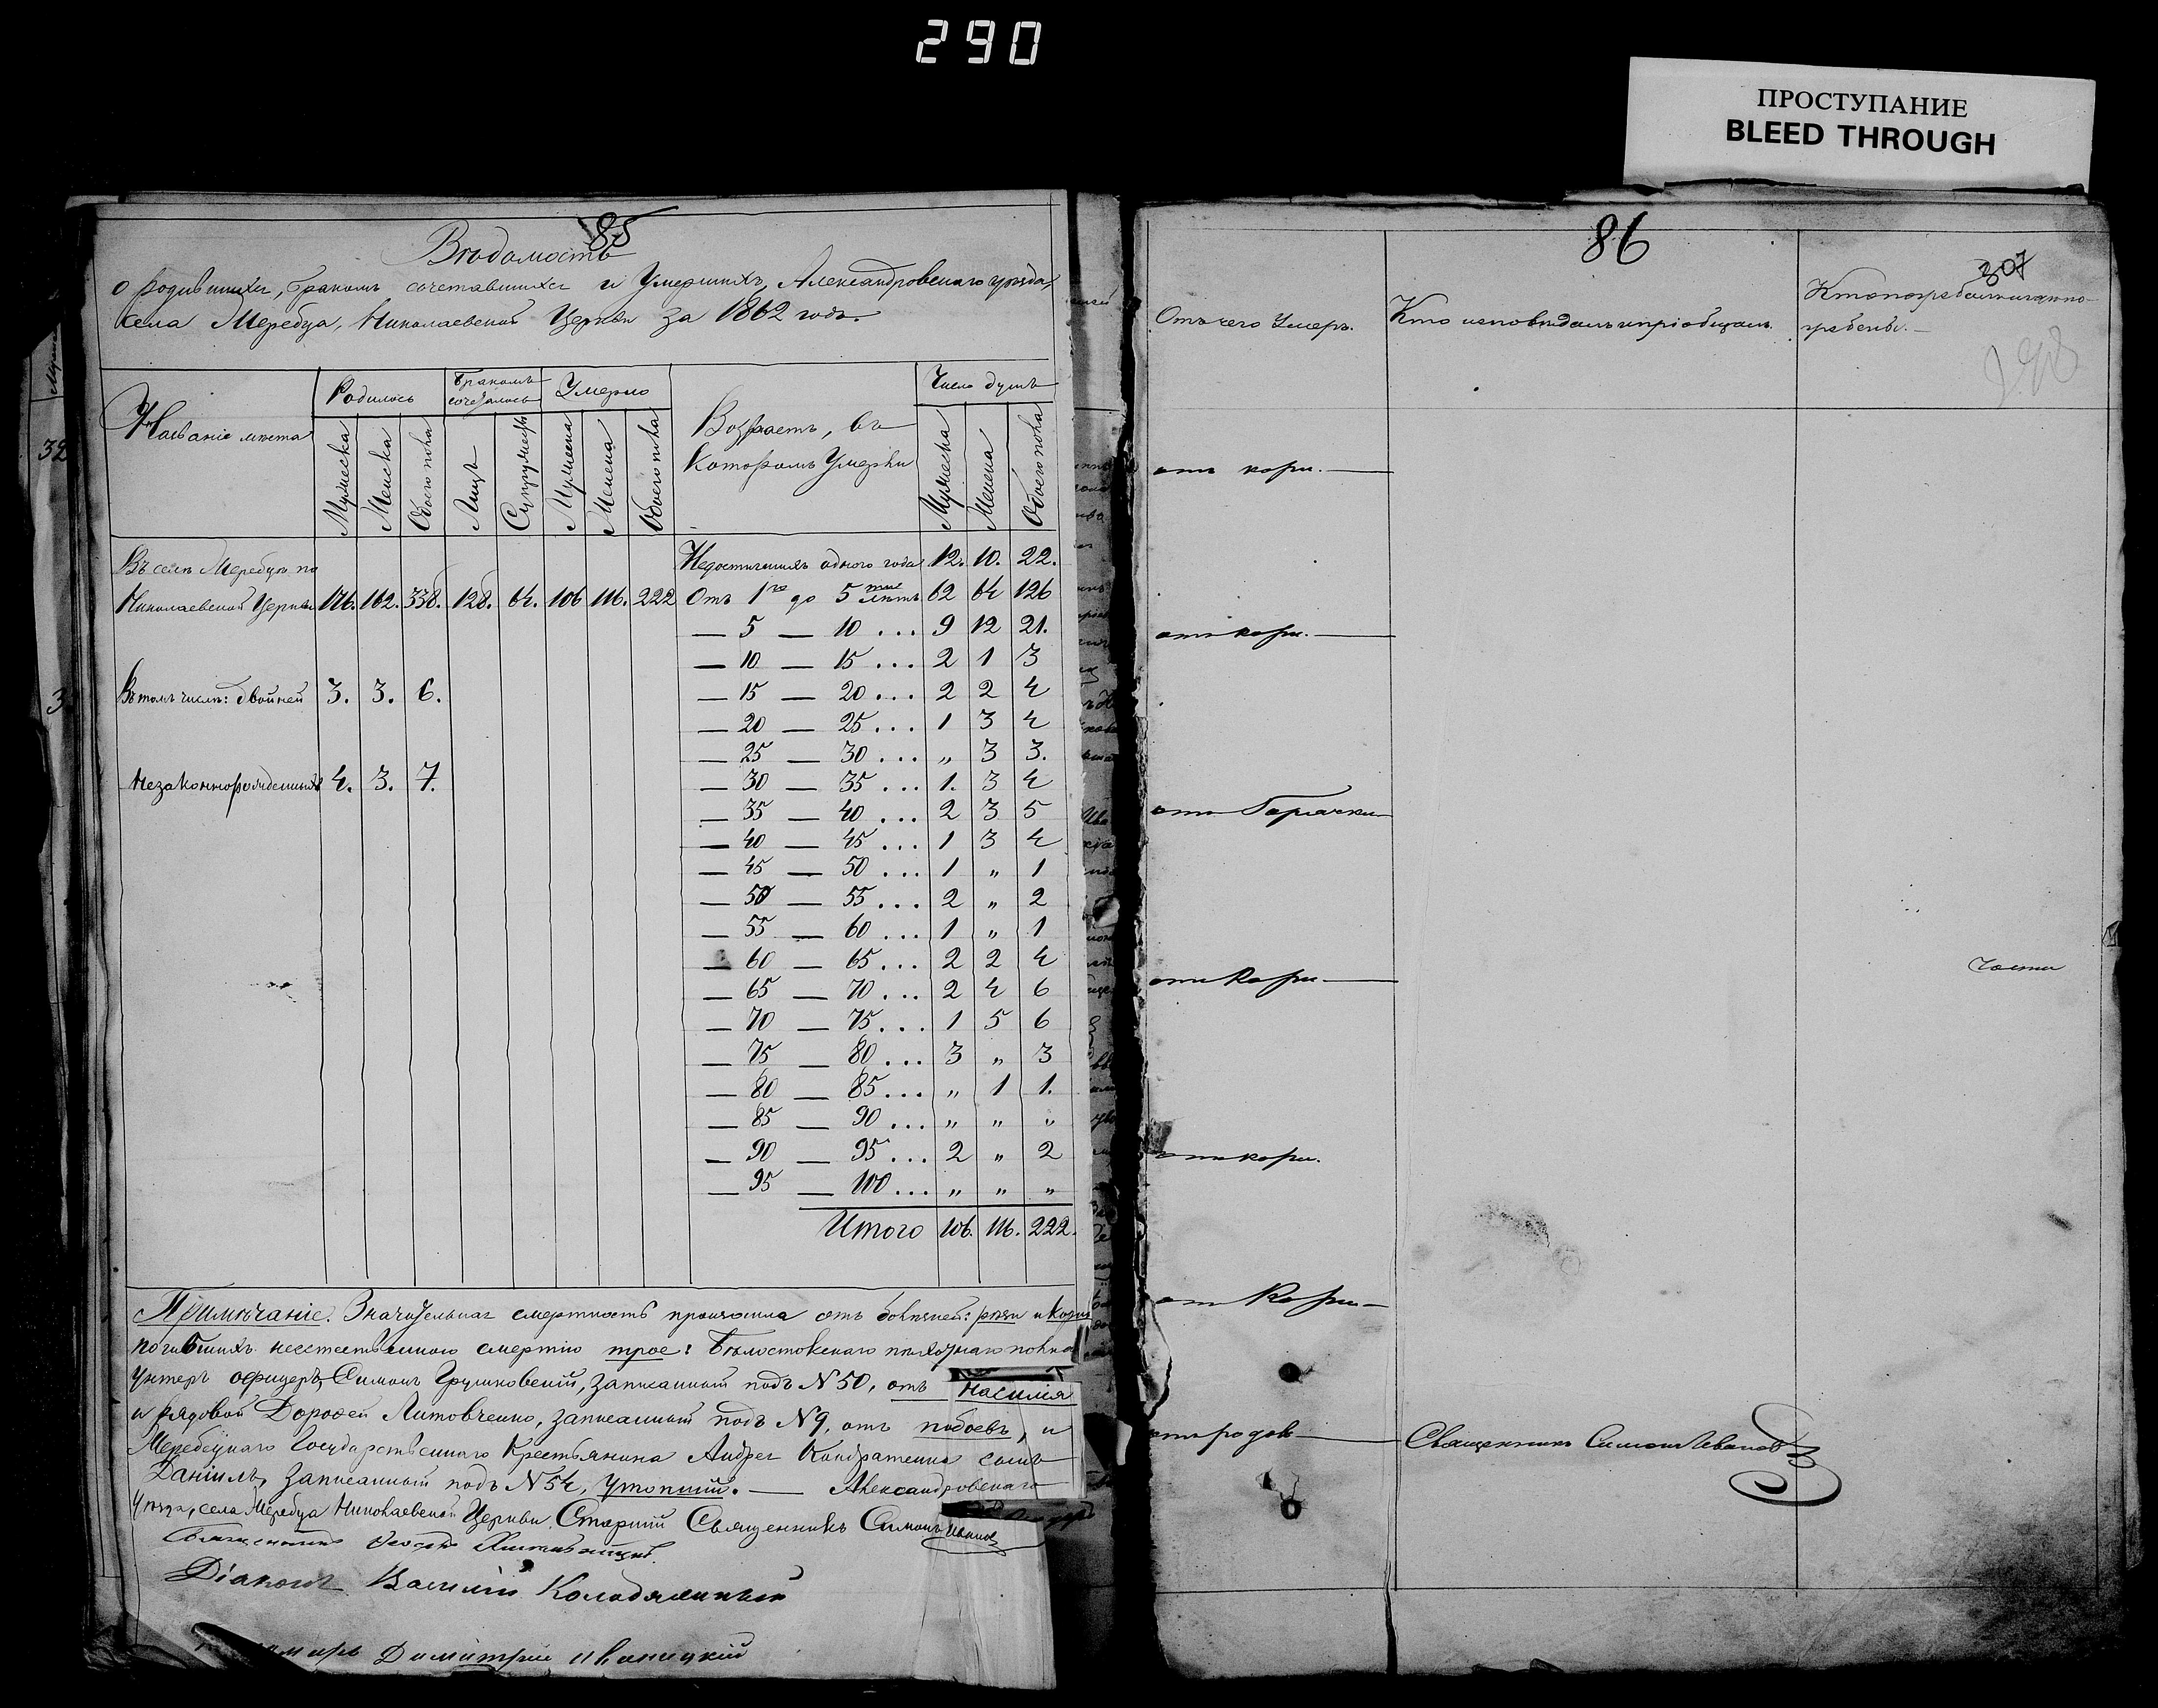 290
ПРОСТУПАНИЕ
BLEED THROUGH
85
Вѣдомость
о родившихся, бракомъ сочетавшихся и умершихъ, Александровскаго уѣзда,
села Жеребца, Николаевской Церкви за 1862 годъ.
Названіе мѣста
Родилось
Бракомъ сочеталось
Умерло
Возрастъ, въ
которомъ умерли
Число душъ
Мужеска
Женска
Обоего пола
Лицъ
Супружествъ
Мужеска
Женска
Обоего пола
Мужеска
Женска
Обоего пола
Въ селѣ Жеребцѣ по
Николаевской Церкви 176. 162. 338. 128. 64. 106 116. 222
Въ томъ числѣ: двойней 3. 3. 6.
Незаконнорожденныхъ 4. 3. 7.
Недостигшихъ одного года 12. 10. 22.
Отъ 1го до 5ти лѣтъ 62 64 126
— 5 — 10 ... 9 12 21.
— 10 — 15 ... 2 1 3
— 15 — 20 ... 2 2 4
— 20 — 25 ... 1 3 4
— 25 — 30 ... „ 3 3.
— 30 — 35 ... 1. 3 4
— 35 — 40 ... 2 3 5
— 40 — 45 ... 1 3 4
— 45 — 50 ... 1 „ 1
— 50 — 55 ... 2 „ 2
— 55 — 60 ... 1 „ 1
— 60 — 65 ... 2 2 4
— 65 — 70 ... 2 4 6
— 70 — 75 ... 1 5 6
— 75 — 80 ... 3 „ 3
— 80 — 85 ... „ 1 1.
— 85 — 90 ... „ „ „
— 90 — 95 ... 2 „ 2
— 95 — 100 ... „ „ „
Итого 106. 116. 222.
Примѣчаніе. Значительная смертность произошла отъ болѣзней: и кори
погибшихъ неестественною смертію трое: Бѣлостокскаго пѣхотнаго полка
унтеръ офицеръ Симонъ записанный подъ N 50, отъ насилія
и рядовой Дорофей Литовченко, записанный подъ N 9, отъ побоевъ, и
Жеребецкаго Государственнаго Крестьянина Андрея Кондратенка сынъ
Даніилъ, записанный подъ N 54, утопшій. — Александровскаго
уѣзда, села Жеребца Николаевской Церкви Старшій Священникъ Симонъ Ивановъ
Священникъ
Діаконъ Василій Колодяжный
Димитрій Иваницкій
86
307
Отъ чего умеръ.
Кто исповѣдалъ и пріобщалъ.
Кто погребалъ и гдѣ по-
гребенъ.
298
отъ кори.
отъ кори.
отъ Горячки
отъ Кори
отъ кори.
отъ Кори
отъ родовъ
Священникъ Симонъ Ивановъ